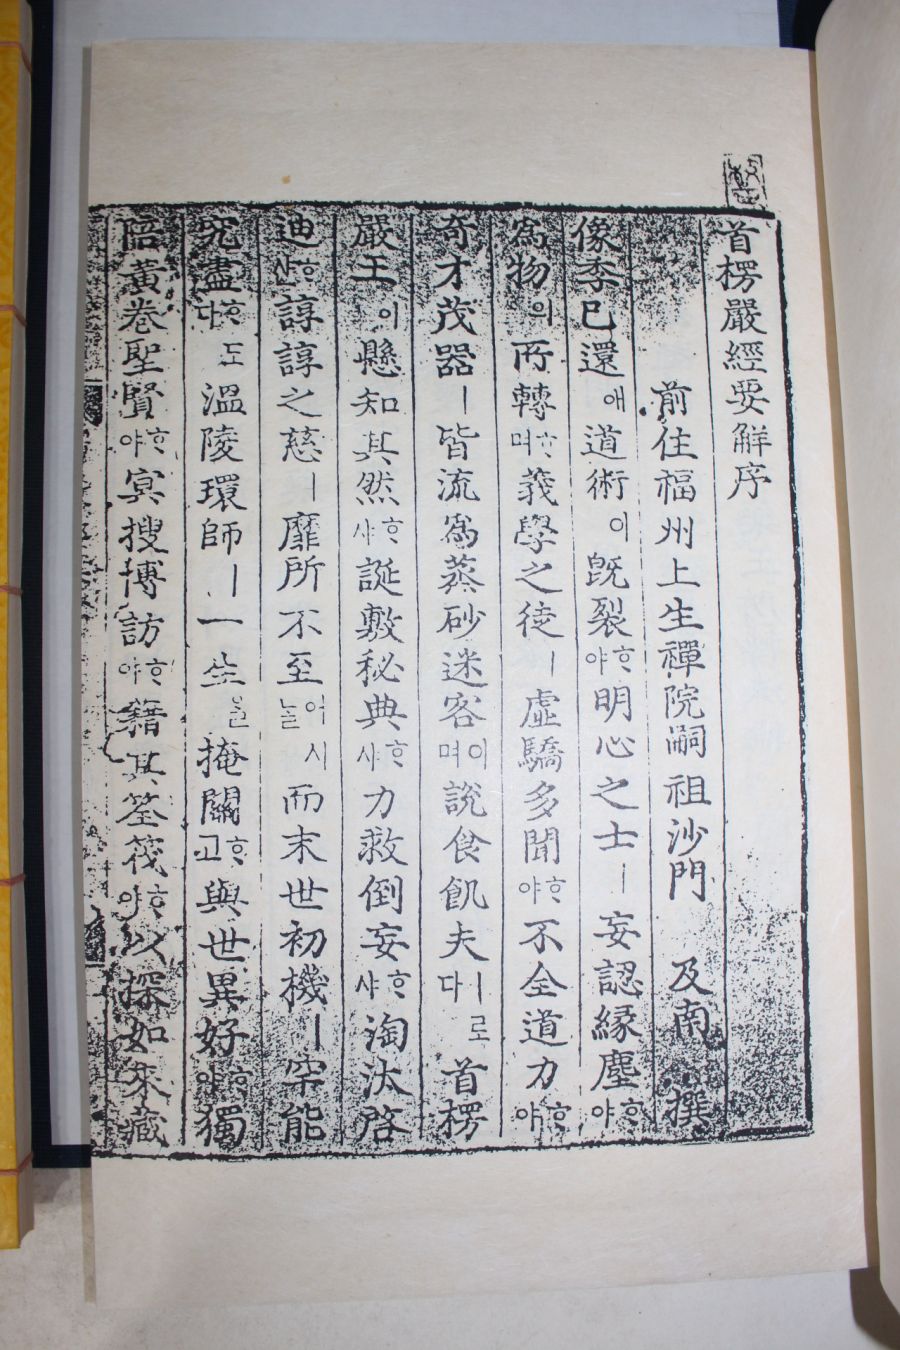 首楞嚴經要觧序
前住福州上生禪院嗣祖沙門 及南 撰
像季已還애道術이旣裂ᄒᆞ야明心之士ㅣ妄認緣塵ᄒᆞ야
爲物의所轉ᄒᆞ며義學之徒ㅣ虛驕多聞ᄒᆞ야不全道力ᄒᆞ야
奇才茂器ㅣ皆流爲蒸砂迷客이며說食飢夫ㅣ다로首楞
嚴王이懸知其然ᄒᆞ샤誕敷秘典ᄒᆞ샤力救倒妄ᄒᆞ샤淘汰啓
迪ᄒᆞ산諄諄之慈ㅣ靡所不至어시늘而末世初機ㅣ罕能
究盡ᄒᆞ다도溫陵環師ㅣ一生을掩關ᄒᆞ고與世異好ᄒᆞ야獨
陪黃卷聖賢ᄒᆞ야冥搜博訪ᄒᆞ야藉其筌筏ᄒᆞ야以探如來藏